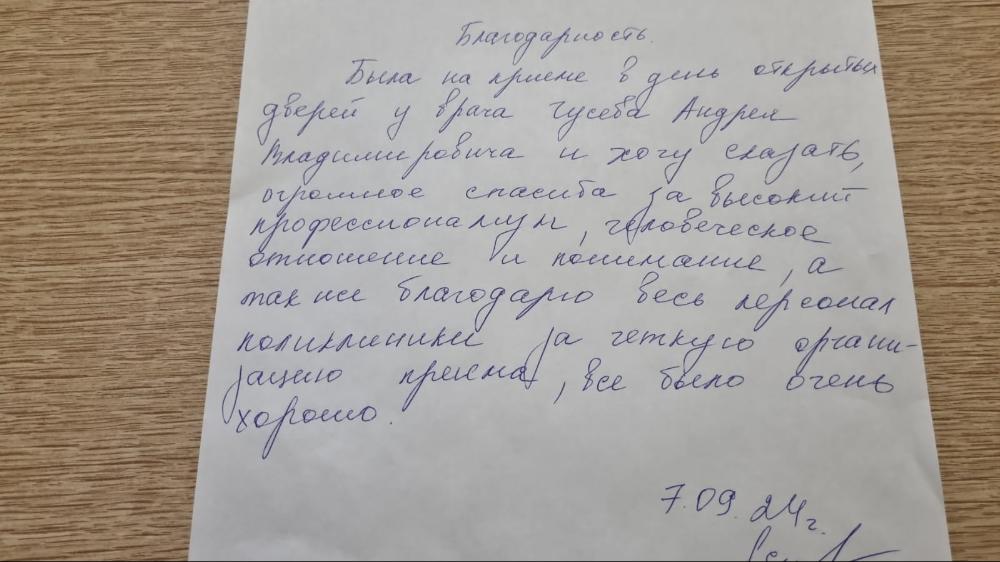 Благодарность.
Была на приеме в день открытых
дверей у врача Гусева Андрея
Владимировича и хочу сказать,
огромное спасиба за высокий
профессионализм, человеческое
отношение и понимание, а
также благодарю весь персонал
поликлиники за четкую органи-
зацию приема, все было очень
хорошо.
7.09.24г.